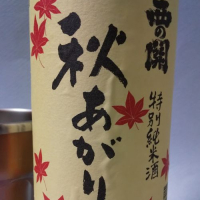 西の関
特別純米酒
秋あがり